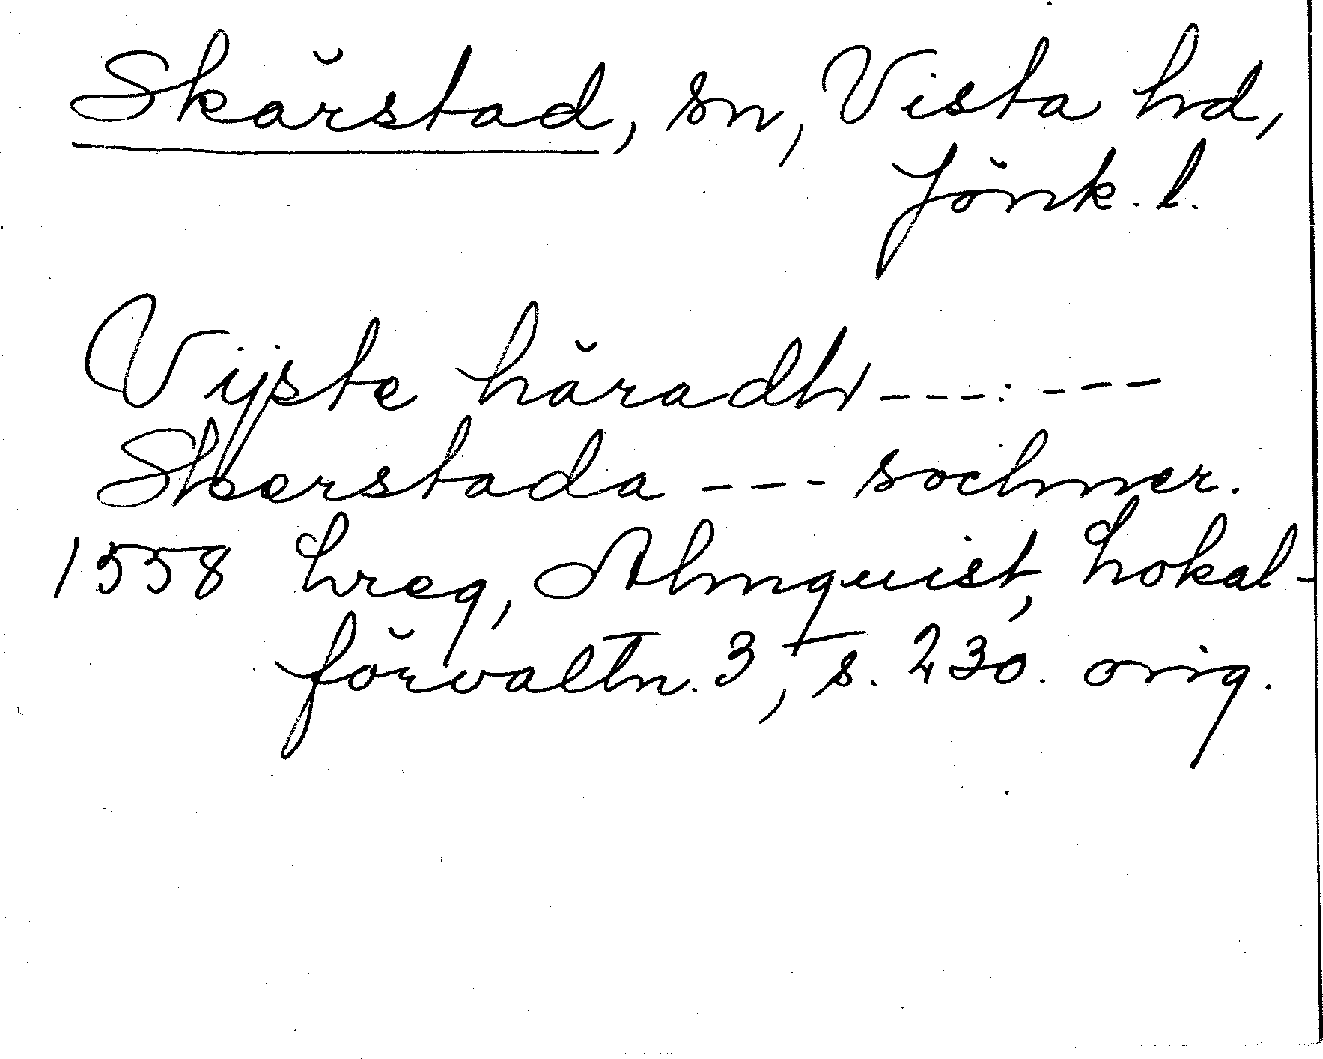 Skärstad, sn, Vista hd,
Jönk. l.
Vijste häradh ---:---
Skerstada --- sochner.
1558 hreg, Almquist, Lokal-
förvaltn. 3, s. 230. orig.